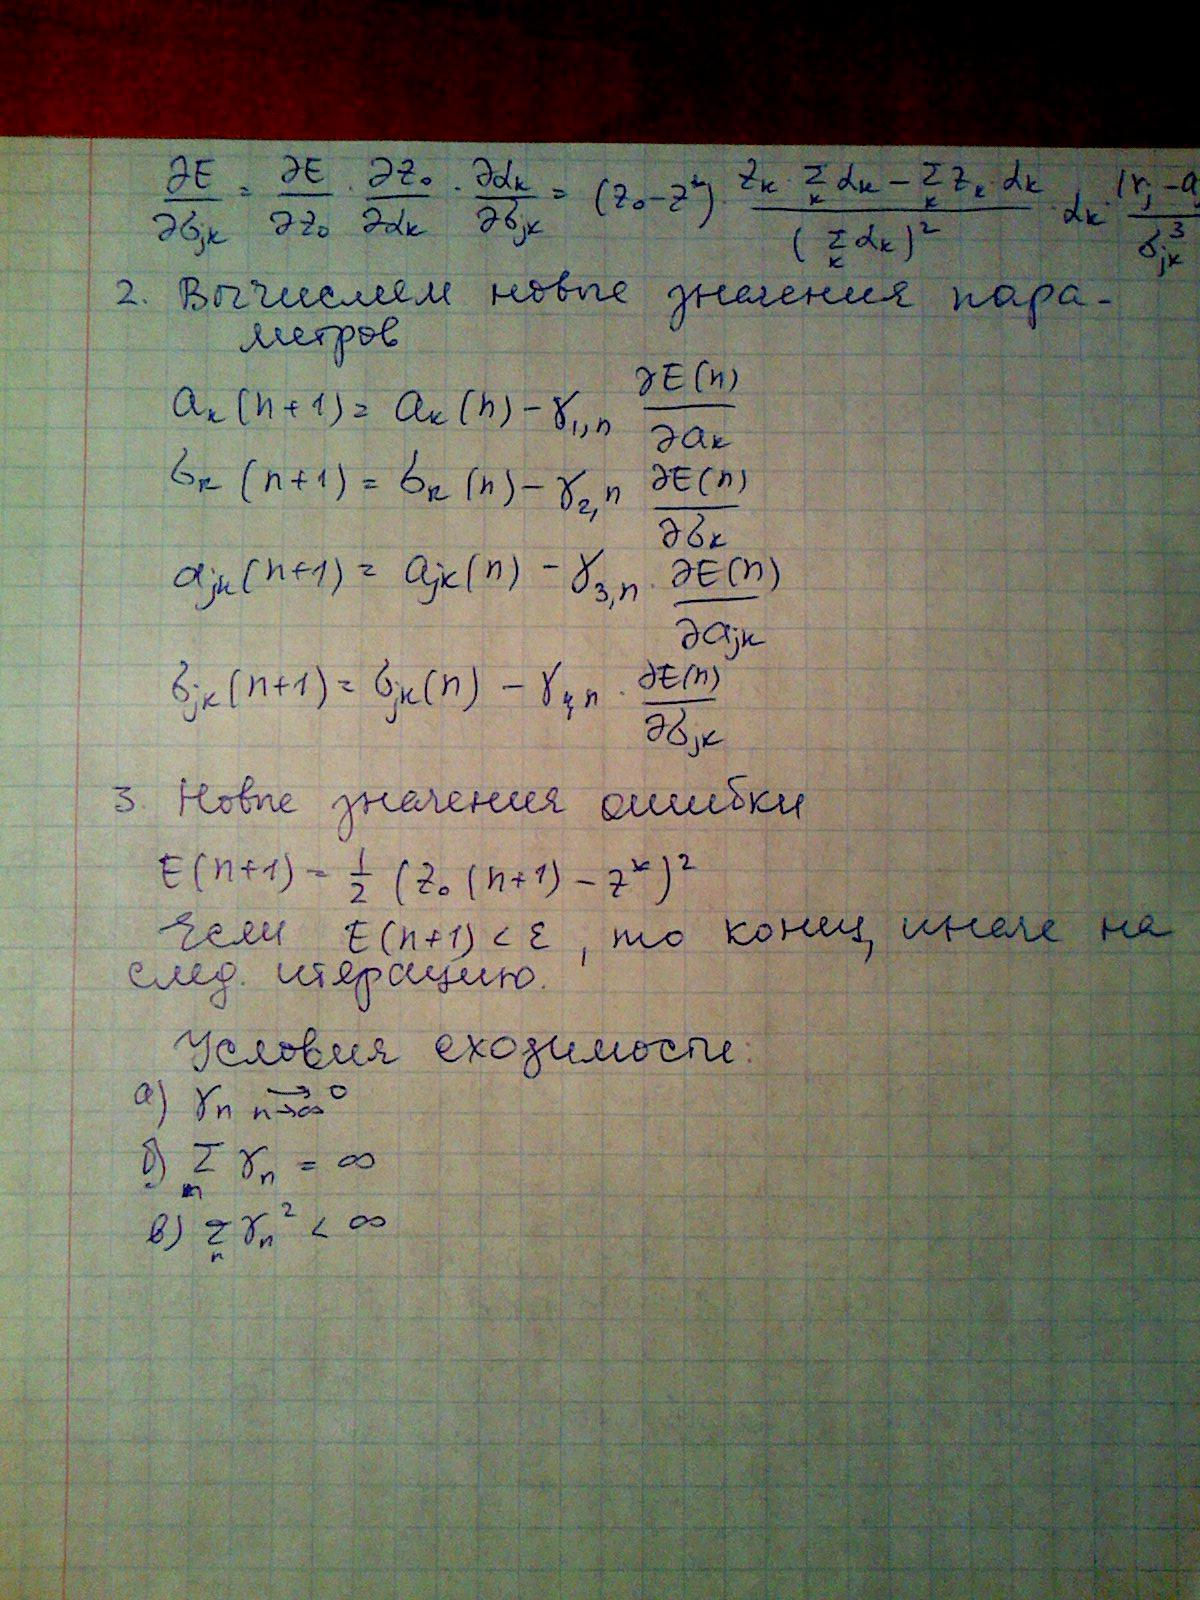 ∂E/∂σ_jk = ∂E/∂z₀ · ∂z₀/∂α_k · ∂α_k/∂σ_jk = (z₀ - z*) · (z_k · Σ_k α_k - Σ_k z_k · α_k)/(Σ_k α_k)² · α_k · (r_j - a_j/σ_jk³
2. Вычисляем новые значения пара-
метров
a_k(n+1) = a_k(n) - γ_1,n ∂E(n)/∂a_k
σ_k(n+1) = σ_k(n) - γ_2,n ∂E(n)/∂σ_k
a_jk(n+1) = a_jk(n) - γ_3,n · ∂E(n)/∂a_jk
σ_jk(n+1) = σ_jk(n) - γ_4,n · ∂E(n)/∂σ_jk
3. Новые значения ошибки
E(n+1) = 1/2 (z₀(n+1) - z*)²
Если E(n+1) < ε, то конец, иначе на
след. итерацию.
Условия сходимости:
а) γ_n →_(n→∞) 0
б) Σ_n γ_n = ∞
в) Σ_n γ_n² < ∞